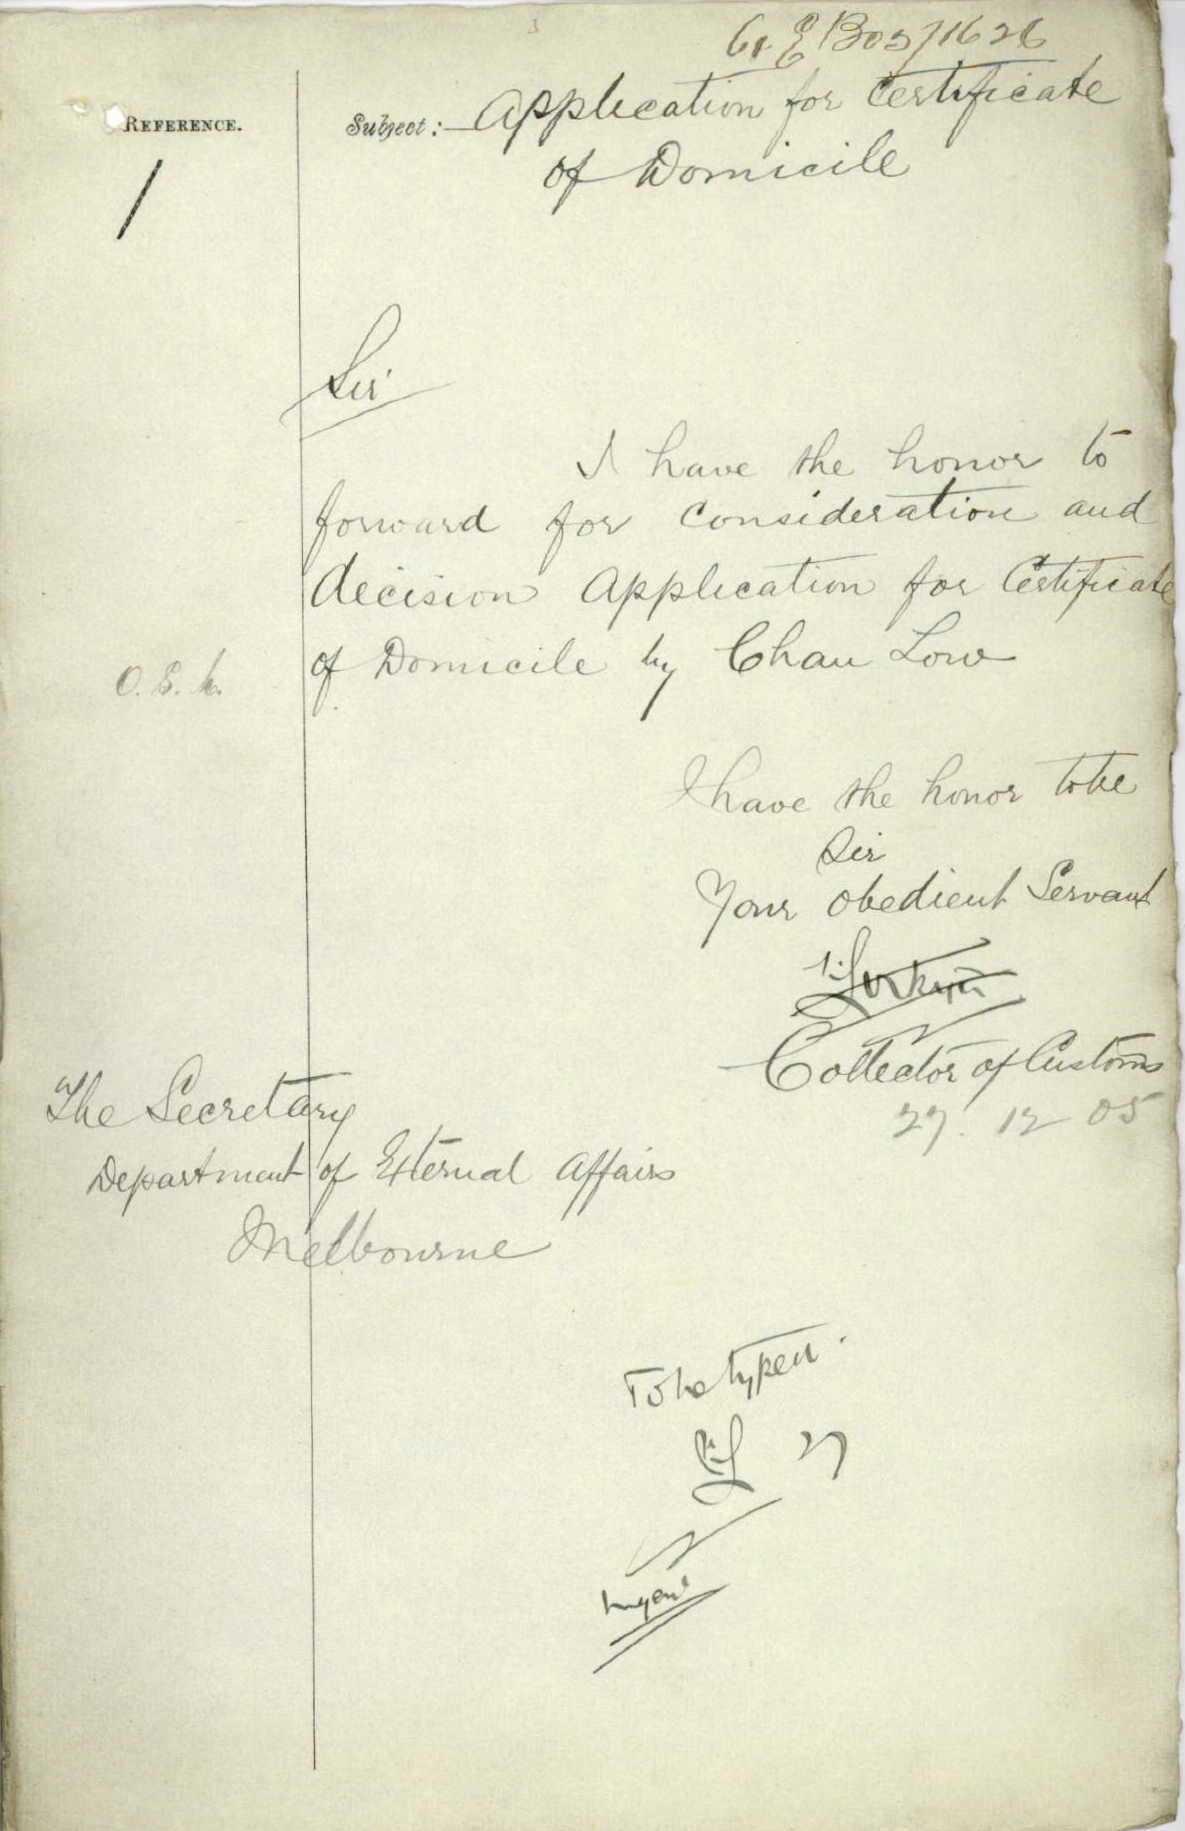 REFERENCE.
Subject:— Application for Certificate
of Domicile
Sir
I have the honor to
forward for consideration and
decision Application for Certificate
of Domicile by Chau Low
I have the honor to be
Sir
Your obedient Servant
Collector of Customs
27. 12 05
The Secretary
Department of External Affairs
Melbourne
To be typed.
27
Urgent